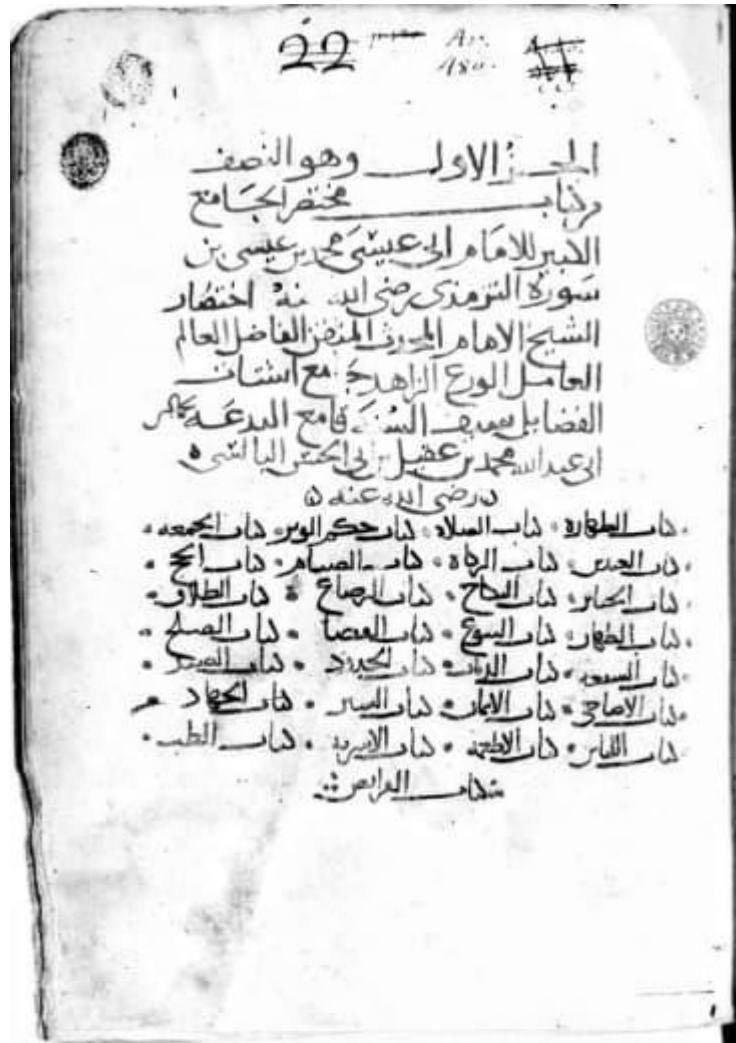 22 Ar. 180.
الجزُ الاول وهو النصف
من كتاب مختصر الجامع
الكبير للامام ابى عيسى محمد بن عيسى بن
سورة الترمذى رضى الله عنهُ اختصار
الشيخ الامام المحدث المتقن الفاضل العالم
العامل الورع الزاهد جامع اشتات
الفضايل سيف السنة قامع البدعة
ابى عبد الله محمد بن عقيل بن ابى الحسن البالسى
رضى الله عنه
كتاب الطهارة كتاب الصلاه كتاب حكم الوتر كتاب الجمعه
كتاب العيدين كتاب الزكاة كتاب الصيام كتاب الحج
كتاب الجنايز كتاب النكاح كتاب الرضاع كتاب الطلاق
كتاب الظهار كتاب البيوع كتاب القضا كتاب الصلح
كتاب كتاب الديات كتاب الحدود كتاب الصيد
كتاب الاضاحى كتاب الايمان كتاب السير كتاب الجهاد
كتاب اللباس كتاب الاطعمه كتاب الاشربه كتاب الطب
كتاب الفرايض
1